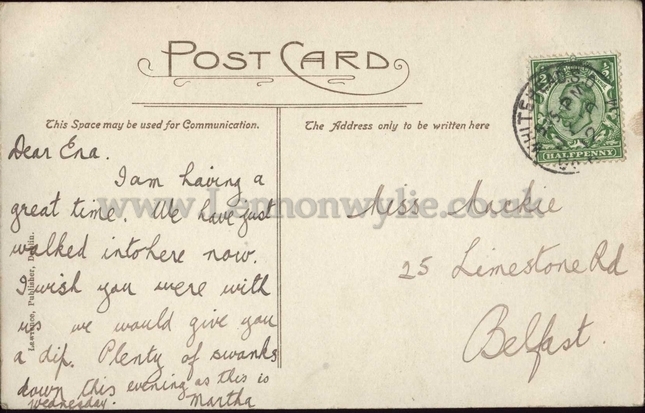 POST CARD
This Space may be used for Communication.
The Address only to be written here
HALFPENNY
Dear Ena.
I am having a
great time. We have just
walked into here now.
I wish you were with
us we would give you
a dip. Plenty of swanks
down this evening as this is
Wednesday. Martha
Miss Mickie
25 Limestone Rd
Belfast.
Lawrence, Publisher, Dublin.
www.Lennonwylie.co.uk